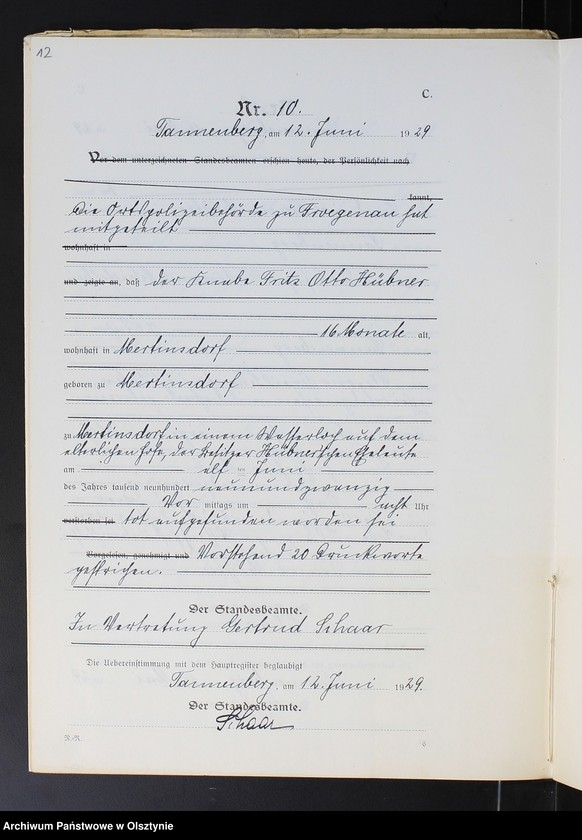 12
C.
Nr. 10.
Tannenberg, am 12. Juni 1929
Vor dem unterzeichneten Standesbeamten erschien heute, der Persönlichkeit nach
kannt,
Die Ortspolizeibehörde zu Froegenau hat
mitgeteilt
wohnhaft in
und zeigte an, daß der Knabe Fritz Otto Hübner
16 Monate alt,
wohnhaft in Mertinsdorf
geboren zu Mertinsdorf
zu Mertinsdorf in einem Wasserloch auf dem
elterlichen Hofe, der Besitzer Hübner'schen Eheleute
am elf ten Juni
des Jahres tausend neunhundert neunundzwanzig
Vor mittags um acht Uhr
verstorben sei tot aufgefunden worden sei
Vorgelesen, genehmigt und Vorstehend 20 Druckworte
gestrichen.
Der Standesbeamte.
In Vertretung Gertrud Schaar
Die Uebereinstimmung mit dem Hauptregister beglaubigt
Tannenberg, am 12. Juni 1929.
Der Standesbeamte.
Schaar
Archiwum Państwowe w Olsztynie